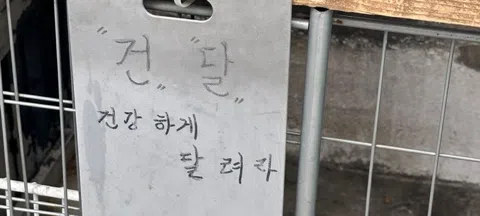 "건" "달"
건강하게
달려라